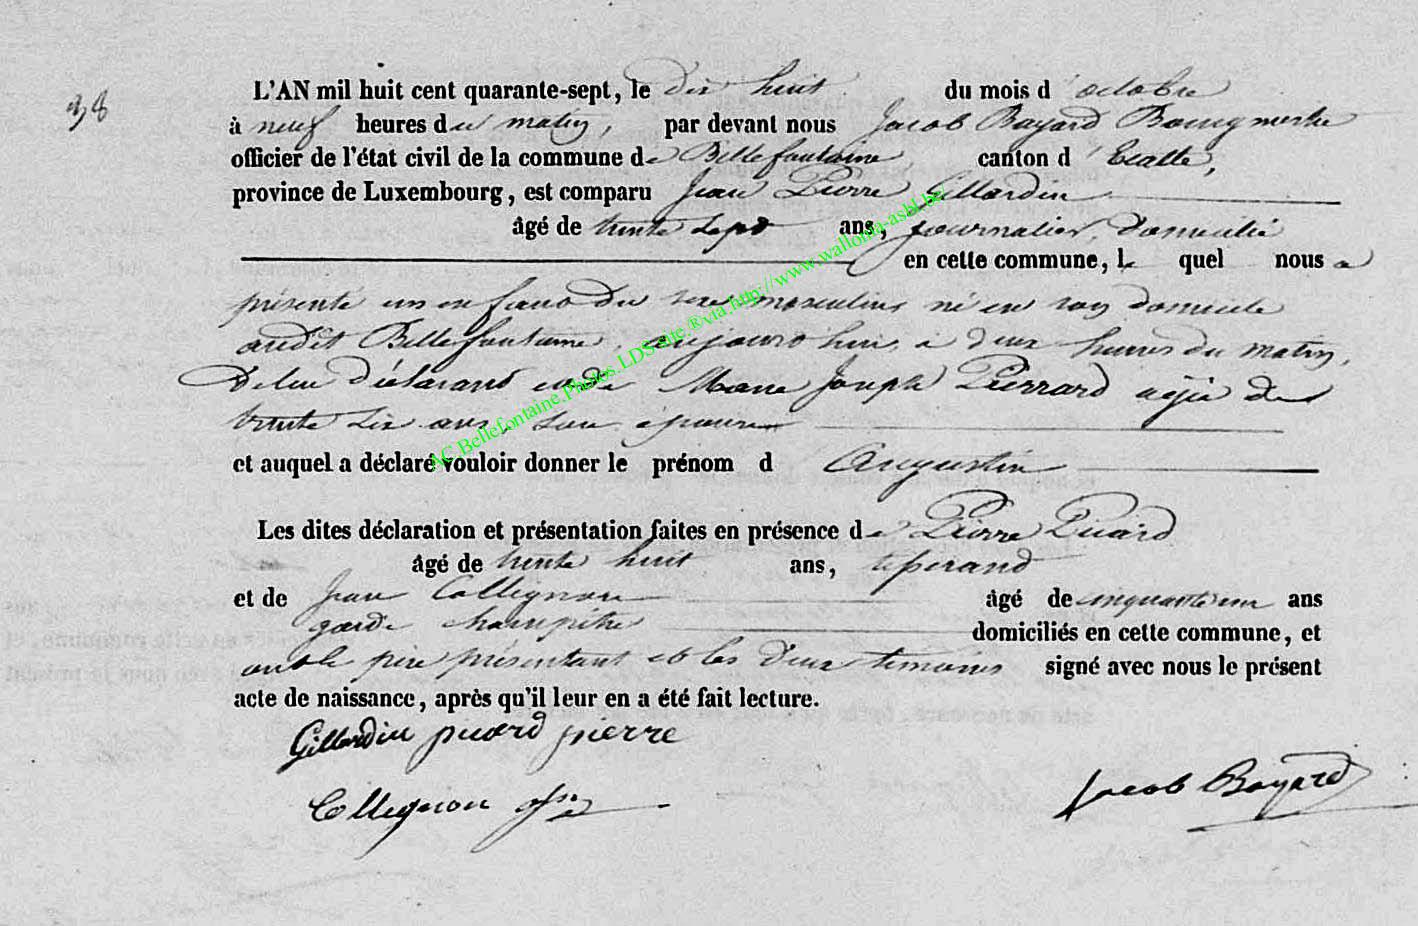 38
L'AN mil huit cent quarante-sept, le dix huit du mois d'octobre
à neuf heures du matin, par devant nous Jacob Bayard Bourgmestre
officier de l'état civil de la commune de Bellefontaine canton d'Etalle,
province de Luxembourg, est comparu Jean Pierre Gillardin
âgé de trente sept ans, journalier, domicilié
en cette commune, le quel nous a
présenté un enfant du sexe masculin, né en son domicile
audit Bellefontaine, aujourd'hui, à deux heures du matin,
De lui déclarant et de Marie Joseph Pierrard agée de
trente six ans, son épouse
et auquel a déclaré vouloir donner le prénom d Augustin
Les dites déclaration et présentation faites en présence de Pierre Picard
âgé de trente huit ans, tisserand
et de Jean Collignon âgé de cinquante un ans
garde champêtre domiciliés en cette commune, et
ont le père présentant et les deux temoins signé avec nous le présent
acte de naissance, après qu'il leur en a été fait lecture.
Gillardin picard pierre
Collignon Jacob Bayard
AC.Bellefontaine.Photos.LDS site.®via.http://www.wallonia-asbl.be/